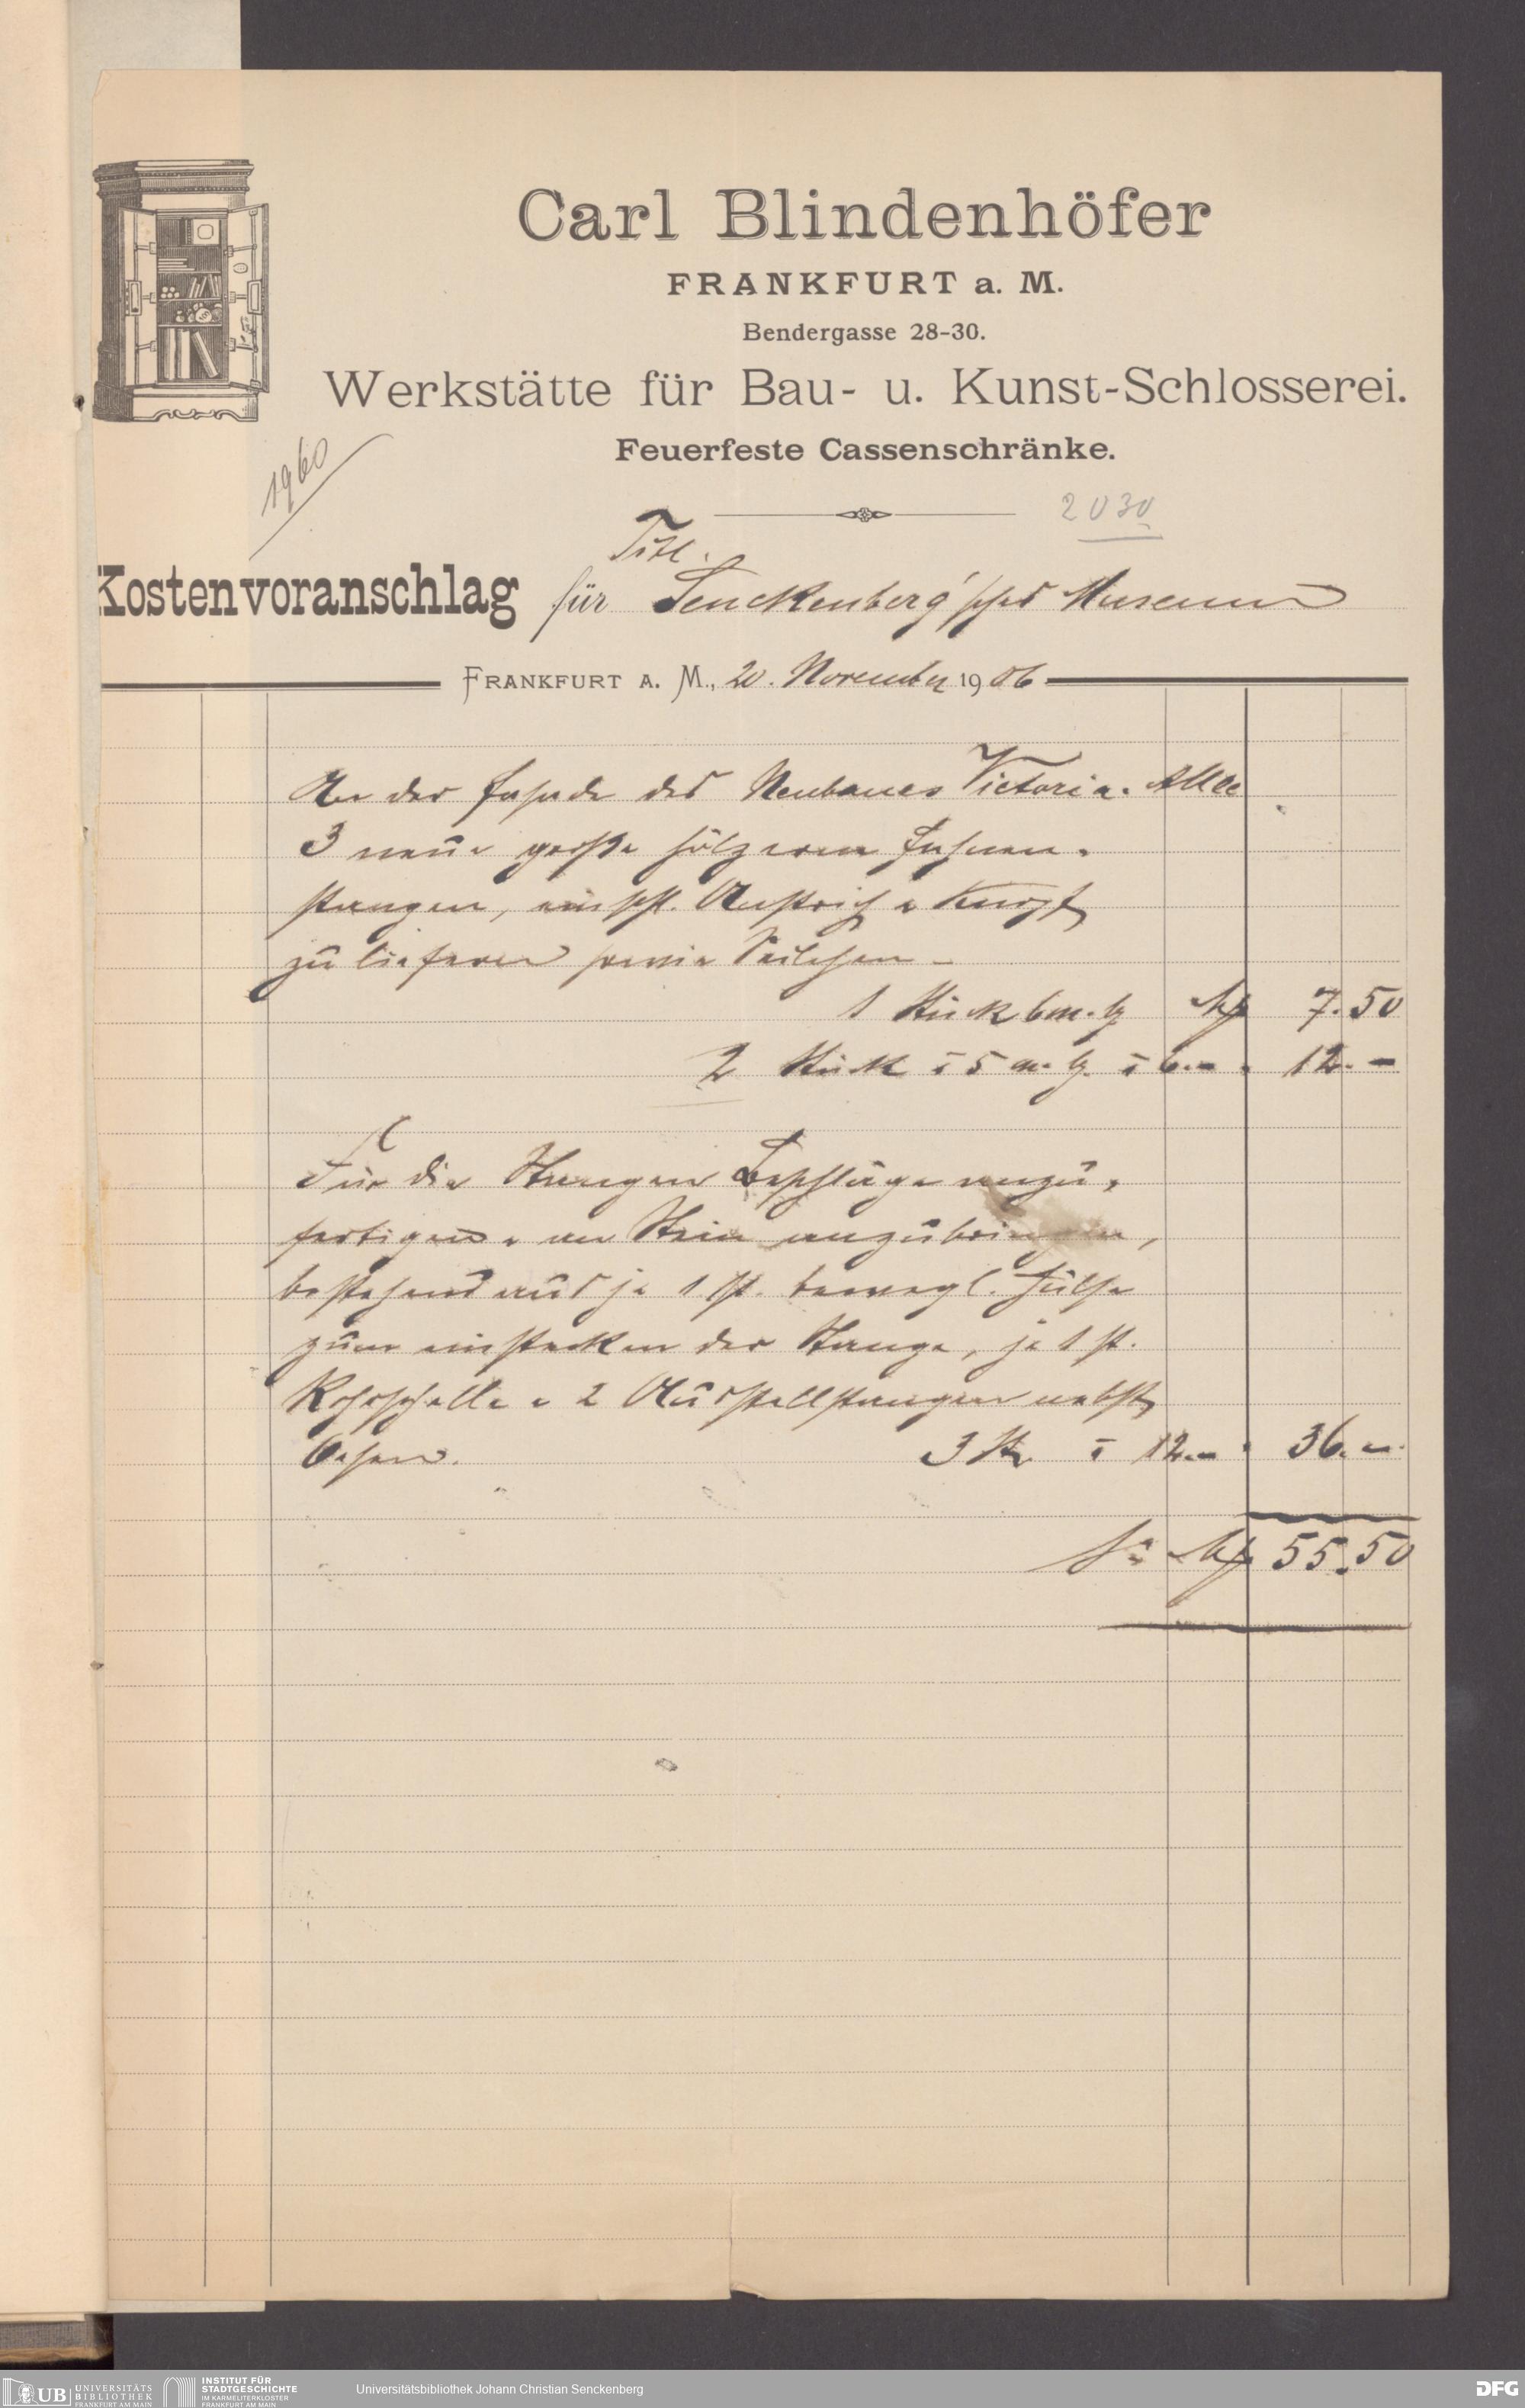 Carl Blindenhöfer
FRANKFURT a. M.
Bendergasse 28-30.
Werkstätte für Bau- u. Kunst-Schlosserei.
Feuerfeste Cassenschränke.
1960
2030
Titl.
Kostenvoranschlag für Senckenberg'sches Museum
FRANKFURT A. M., 20. November 1906
An der Fasade des Neubaues Victoria-Allee
3 neue große hölzerne Fahnen-
stangen, einschl. Anstrich u. Knopf
zu liefern sowie
1 Stück 6 m. lg M 7.50
2 Stück à 5 m. lg. à 6.- " 12.-
Für die Stangen Beschläge anzu-
fertigen u. an Stein anzubringen,
bestehend aus je 1 st. bewegl. Hülse
zum einstecken der Stange, je 1 st.
Rohrschelle u. 2 Ausstellstangen nebst
Oesen. 3 St. à 12.- " 36.-
Sa M 55.50
UB UNIVERSITÄTS
BIBLIOTHEK
FRANKFURT AM MAIN
INSTITUT FÜR
STADTGESCHICHTE
IM KARMELITERKLOSTER
FRANKFURT AM MAIN
Universitätsbibliothek Johann Christian Senckenberg
DFG